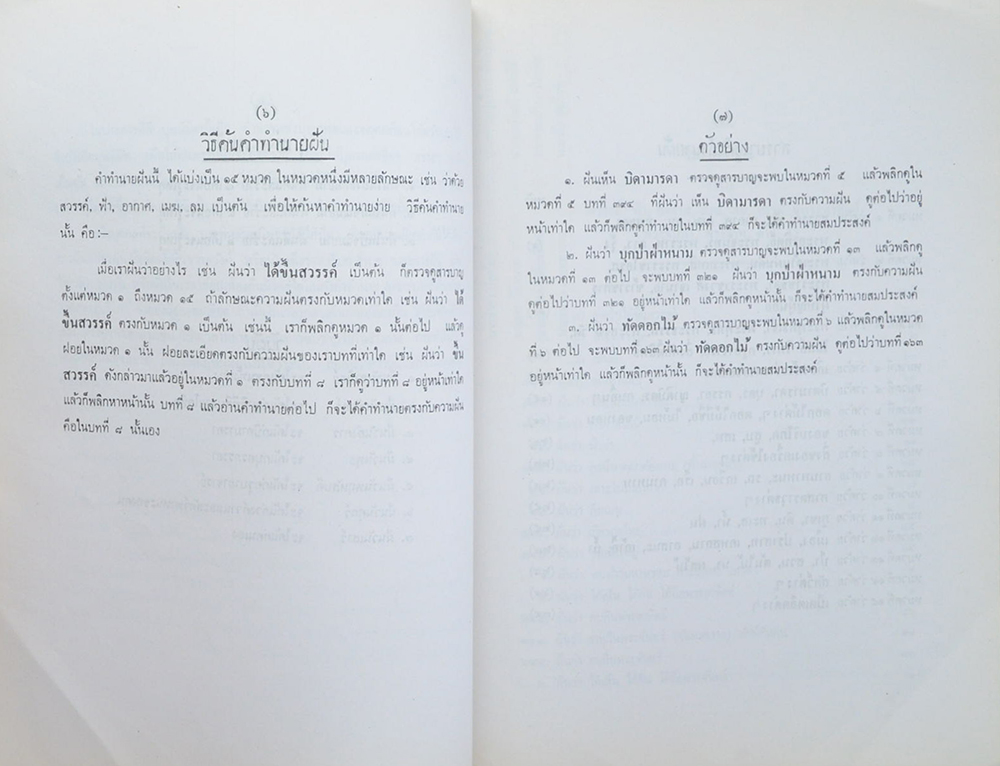 (๖)
วิธีค้นคำทำนายฝัน
คำทำนายฝันนี้ ได้แบ่งเป็น ๑๕ หมวด ในหมวดหนึ่งมีหลายลักษณะ เช่น ว่าด้วย
สวรรค์, ฟ้า, อากาศ, เมฆ, ลม เป็นต้น เพื่อให้ค้นหาคำทำนายง่าย วิธีค้นคำทำนาย
นั้น คือ:–
เมื่อเราฝันว่าอย่างไร เช่น ฝันว่า ได้ขึ้นสวรรค์ เป็นต้น ก็ตรวจดูสารบาญ
ตั้งแต่หมวด ๑ ถึงหมวด ๑๕ ถ้าลักษณะความฝันตรงกับหมวดเท่าใด เช่น ฝันว่า ได้
ขึ้นสวรรค์ ตรงกับหมวด ๑ เป็นต้น เช่นนี้ เราก็พลิกดูหมวด ๑ นั้นต่อไป แล้วดู
ฝอยในหมวด ๑ นั้น ฝอยละเอียดตรงกับความฝันของเราบทที่เท่าใด เช่น ฝันว่า ขึ้น
สวรรค์ ดังกล่าวมาแล้วอยู่ในหมวดที่ ๑ ตรงกับบทที่ ๘ เราก็ดูว่าบทที่ ๘ อยู่หน้าเท่าใด
แล้วก็พลิกหาหน้านั้น บทที่ ๘ แล้วอ่านคำทำนายต่อไป ก็จะได้คำทำนายตรงกับความฝัน
คือในบทที่ ๘ นั้นเอง
(๗)
ตัวอย่าง
๑. ฝันเห็น บิดามารดา ตรวจดูสารบาญจะพบในหมวดที่ ๕ แล้วพลิกดู
หมวดที่ ๕ บทที่ ๓๙๔ ที่ฝันว่า เห็น บิดามารดา ตรงกับความฝัน ดูต่อไปว่าอยู่
หน้าเท่าใด แล้วก็พลิกดูคำทำนายในบทที่ ๓๙๔ ก็จะได้คำทำนายสมประสงค์
๒. ฝันว่า บุกป่าฝ่าหนาม ตรวจดูสารบาญจะพบในหมวดที่ ๑๓ แล้วพลิกดู
ในหมวดที่ ๑๓ ต่อไป จะพบบทที่ ๓๒๑ ฝันว่า บุกป่าฝ่าหนาม ตรงกับความฝัน
ดูต่อไปว่าบทที่ ๓๒๑ อยู่หน้าเท่าใด แล้วก็พลิกดูหน้านั้น ก็จะได้คำทำนายสมประสงค์
๓. ฝันว่า ทัดดอกไม้ ตรวจดูสารบาญจะพบในหมวดที่ ๖ แล้วพลิกดูในหมวด
ที่ ๖ ต่อไป จะพบบทที่ ๑๖๓ ฝันว่า ทัดดอกไม้ ตรงกับความฝัน ดูต่อไปว่าบทที่ ๑๖๓
อยู่หน้าเท่าใด แล้วก็พลิกดูหน้านั้น ก็จะได้คำทำนายสมประสงค์